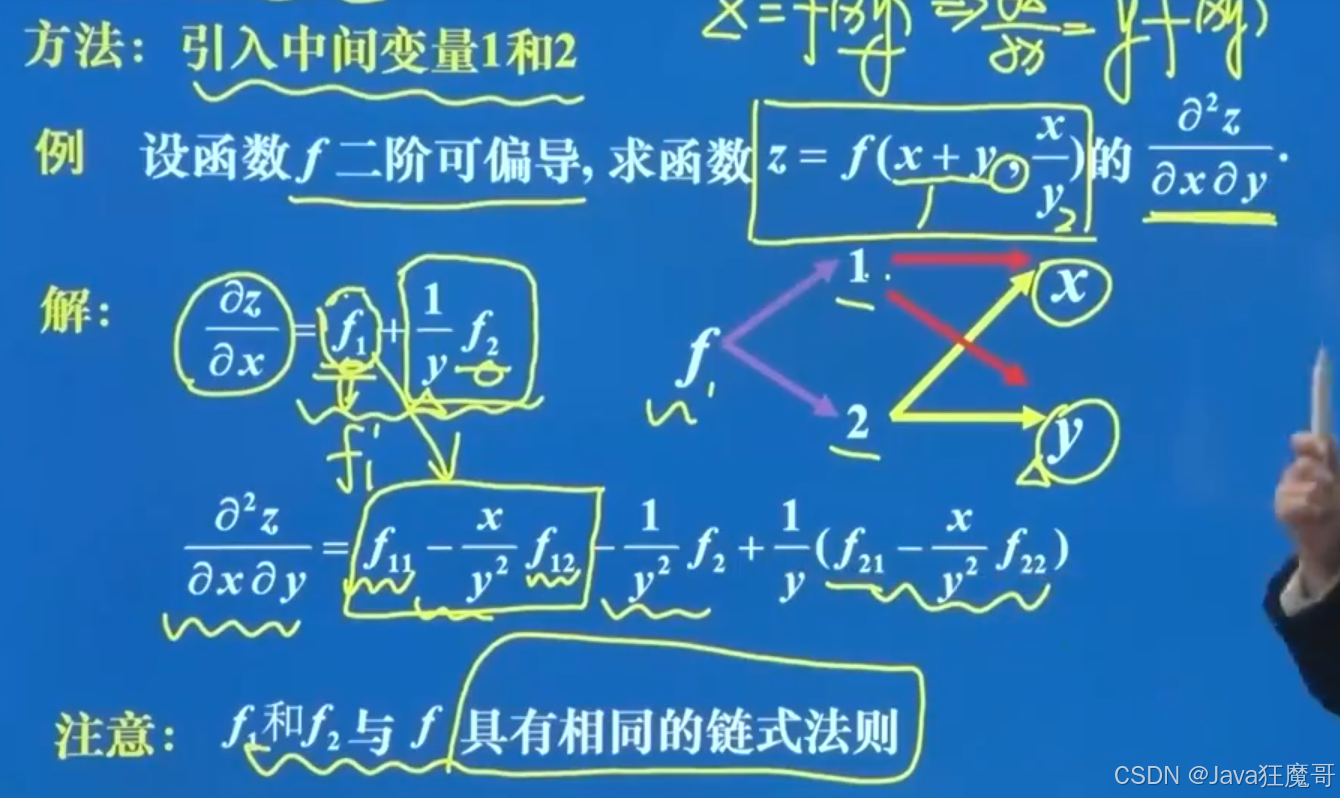 z = f(xy) ⇒ ∂z/∂x = y f'(xy)
方法：引入中间变量1和2
例 设函数 f 二阶可偏导，求函数 z = f(x + y, x/y) 的 ∂²z/∂x∂y.
1 2
解：∂z/∂x = f₁ + 1/y f₂
f 1 2 x y
f₁'
∂²z/∂x∂y = f₁₁ − x/y² f₁₂ − 1/y² f₂ + 1/y (f₂₁ − x/y² f₂₂)
注意：f₁和f₂与 f 具有相同的链式法则
CSDN @Java狂魔哥